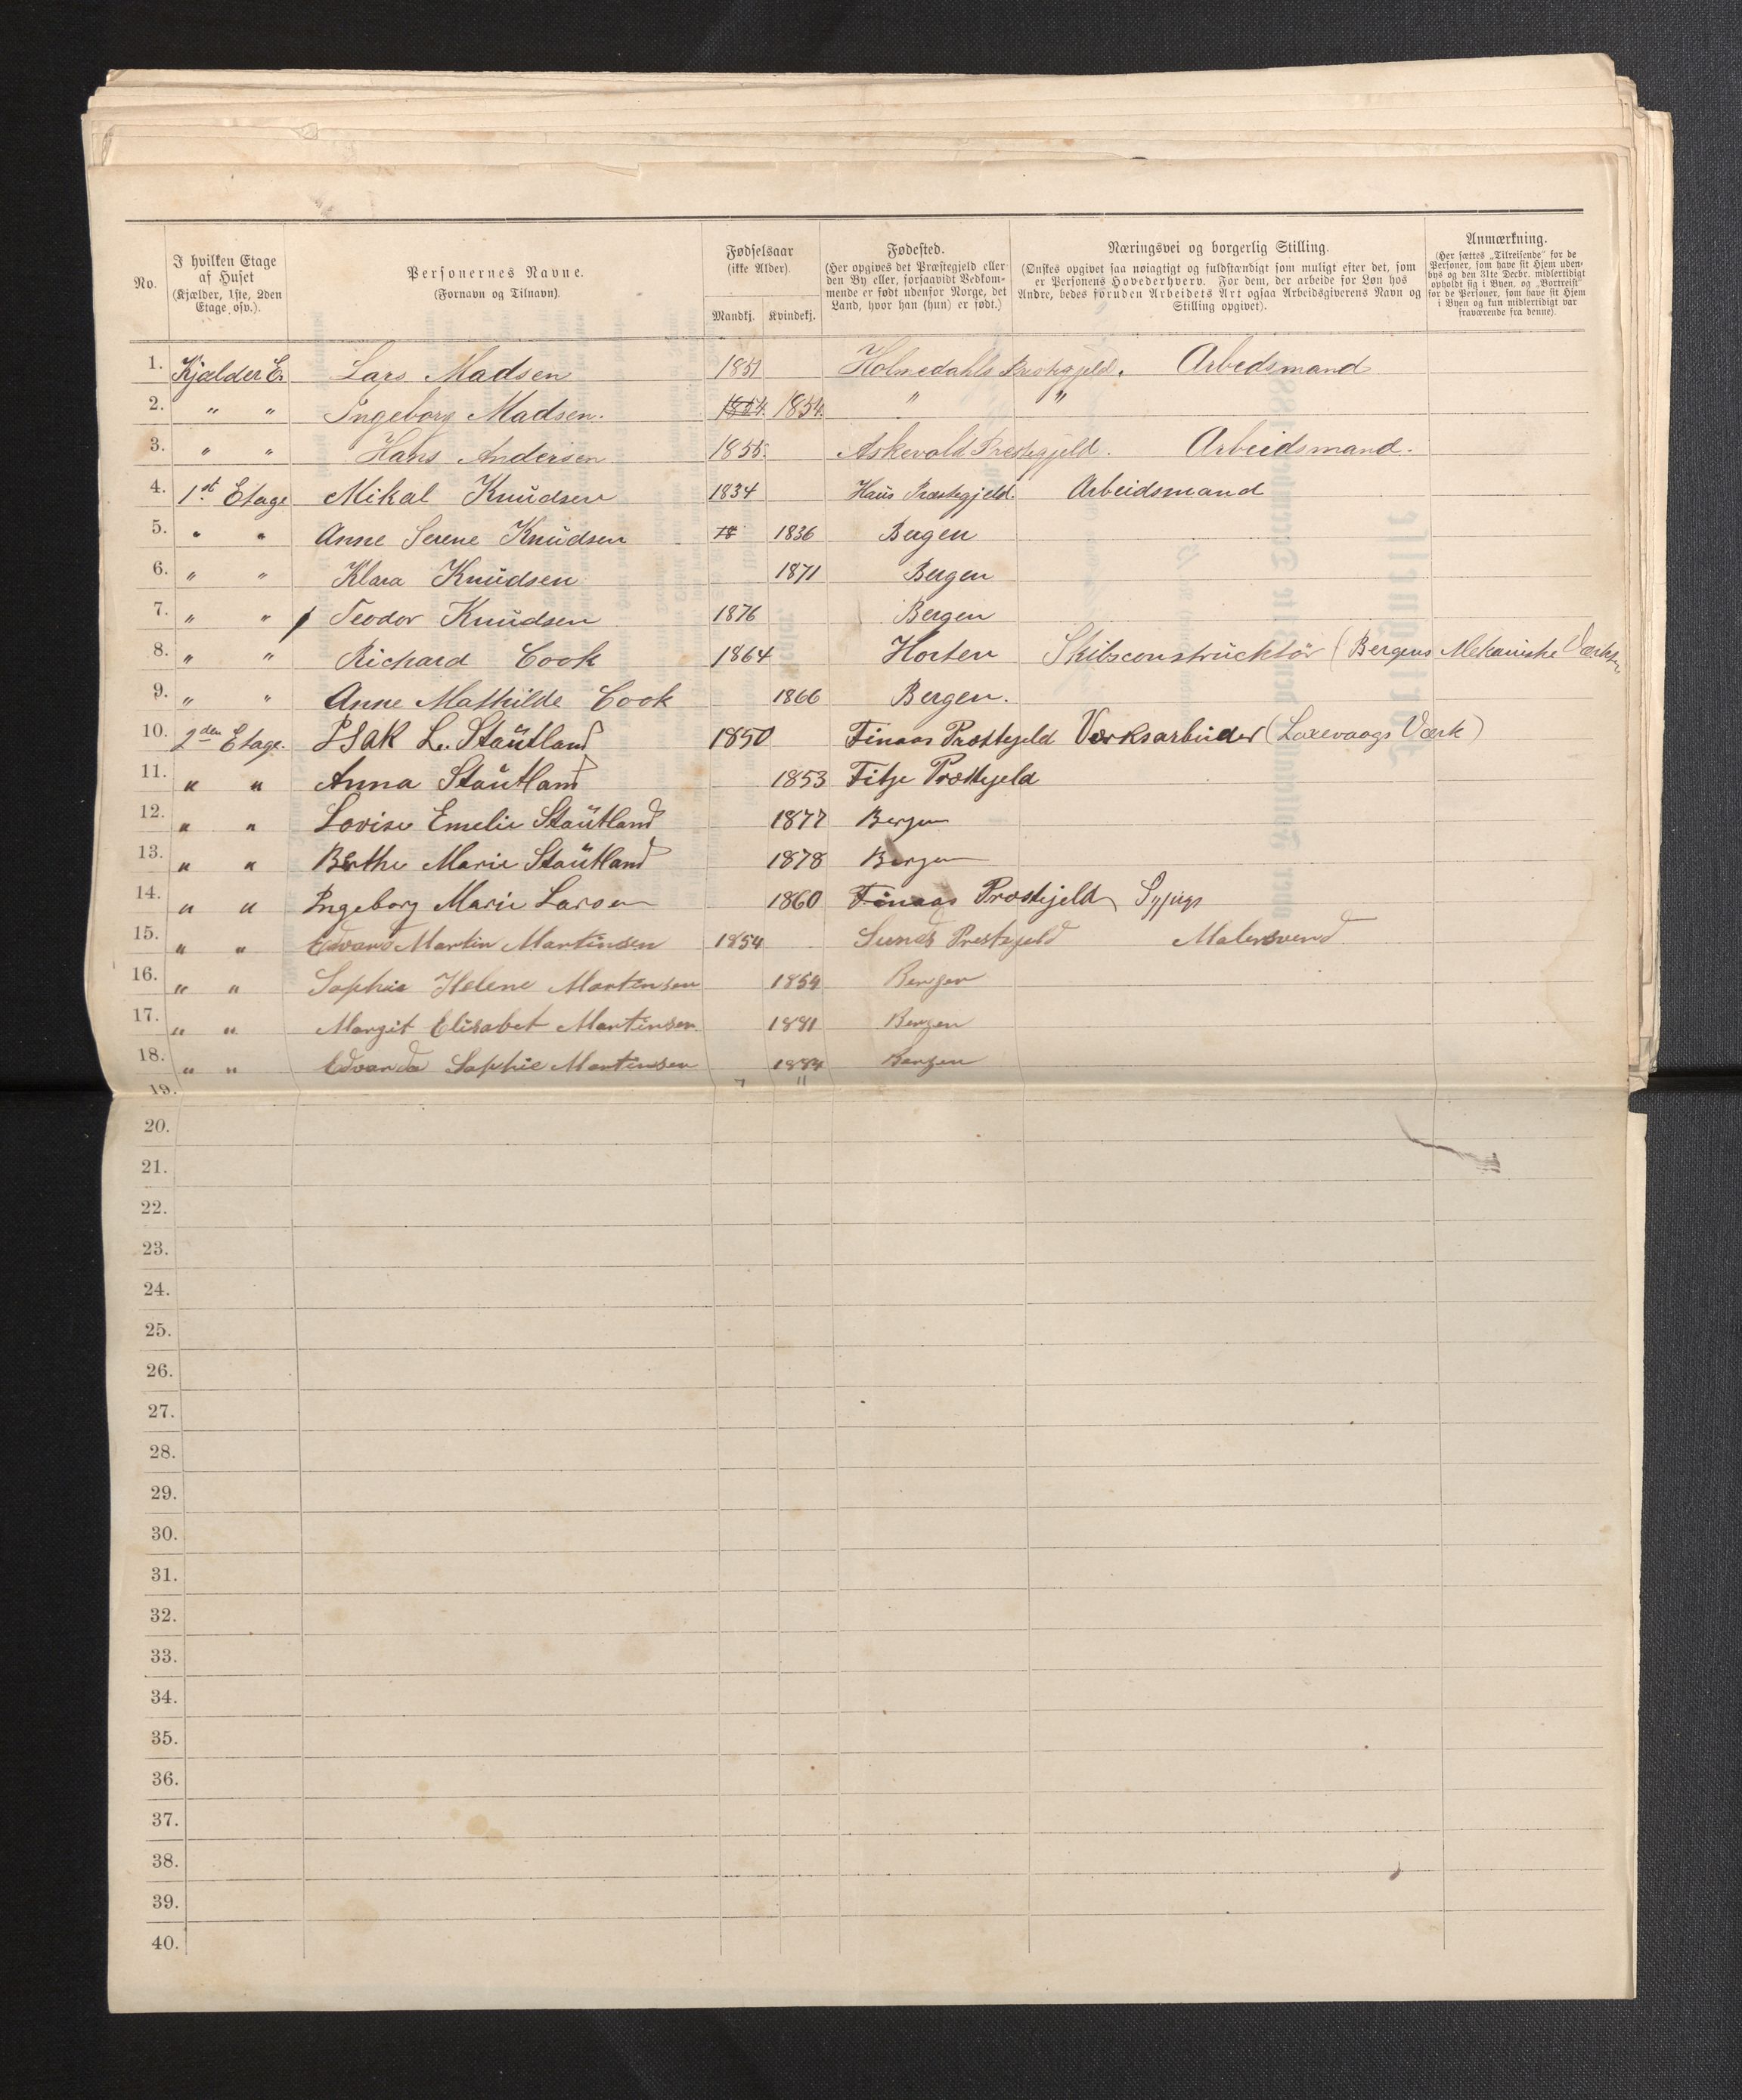 No. I hvilken Etage af Huset (Kjælder, 1ste, 2den Etage osv.). Personernes Navne. (Fornavn og Tilnavn). Fødselsaar (ikke Alder). Mandkj. Kvindekj. Fødested. (Her opgives det Præstegjeld eller den By eller, forsaavidt Vedkommende er født udenfor Norge, det Land, hvor han (hun) er født.) Næringsvei og borgerlig Stilling. (Ønskes opgivet saa nøiagtigt og fuldstændigt som muligt efter det, som er Personens Hovederhverv. For dem, der arbeide for Løn hos Andre, bedes foruden Arbeidets Art ogsaa Arbeidsgiverens Navn og Stilling opgivet). Anmærkning. (Her sættes „Tilreisende" for de Personer, som have sit Hjem udenbys og den 31te Decbr. midlertidigt opholdt sig i Byen, og „Bortreist" for de Personer, som have sit Hjem i Byen og kun midlertidigt var fraværende fra denne).
1. Kjælder E. Lars Madsen 1851 Holmedahls Prestegjeld. Arbedsmand
2. " " Ingeborg Madsen. 1854. 1854. " "
3. " " Hans Andersen 1855. Askevold Prestegjeld. Arbeidsmand.
4. 1st. Etage Mikal Knudsen 1834 Haus Præstegjeld. Arbeidsmand
5. " " Anne Serene Knudsen 18 1836 Bergen
6. " " Klara Knudsen 1871 Bergen
7. " " Teodor Knudsen 1876 Bergen
8. " " Richard Cook 1864 Horten Skibsconstrucktör (Bergens Mekaniske Værksted
9. " " Anne Mathilde Cook 1866 Bergen.
10. 2den Etage. Isak L. Stautland 1850 Finaas Præstegjeld Værksarbeider (Laxevaags Værk)
11. " " Anna Stautland 1853 Fitje Præstegjeld
12. " " Lovise Emelie Stautland 1877 Bergen
13. " " Berthe Marie Stautland 1878 Bergen
14. " " Ingeborg Marie Larsen 1860 Finaas Præstegjeld Sypige
15. " " Edvard Martin Martinsen 1854 Sunds Prestegjeld Malersvend
16. " " Sophie Helene Martinsen 1854 Bergen
17. " " Margit Elisabet Martinsen 1881 Bergen
18. " " Edvarda Sophie Martinsen 1884 Bergen
19. "
20.
21.
22.
23.
24.
25.
26.
27.
28.
29.
30.
31.
32.
33.
34.
35.
36.
37.
38.
39.
40.